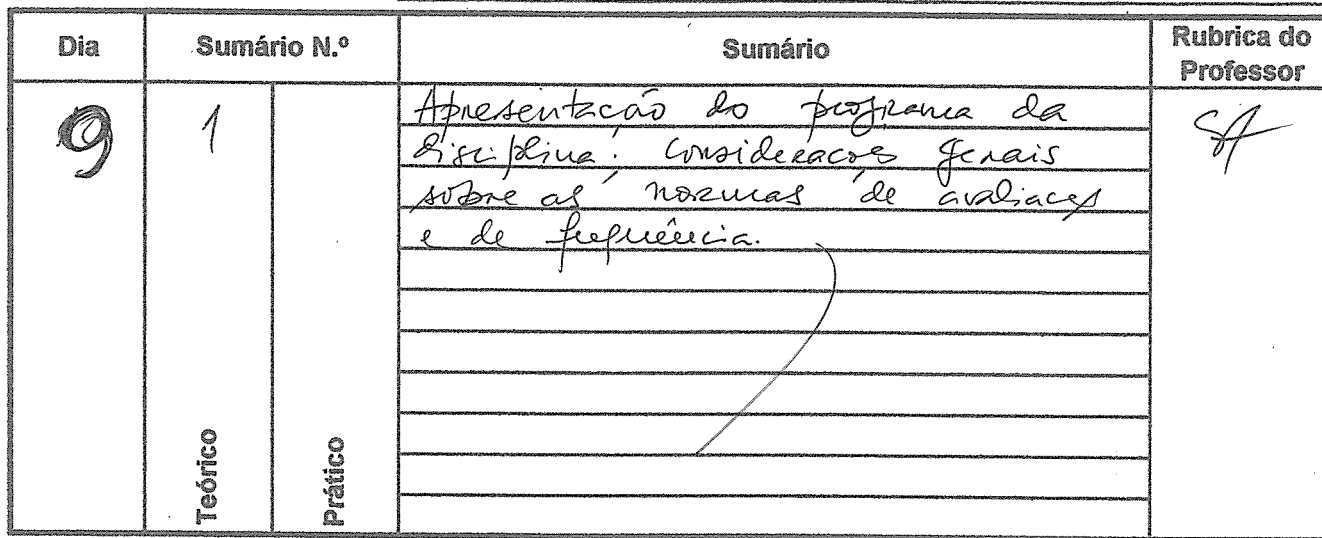 Dia Sumário N.º Sumário Rubrica do Professor
9 1
Apresentação do programa da
disciplina. Considerações gerais
sobre as normas de avaliação
e de frequência.
Teórico Prático